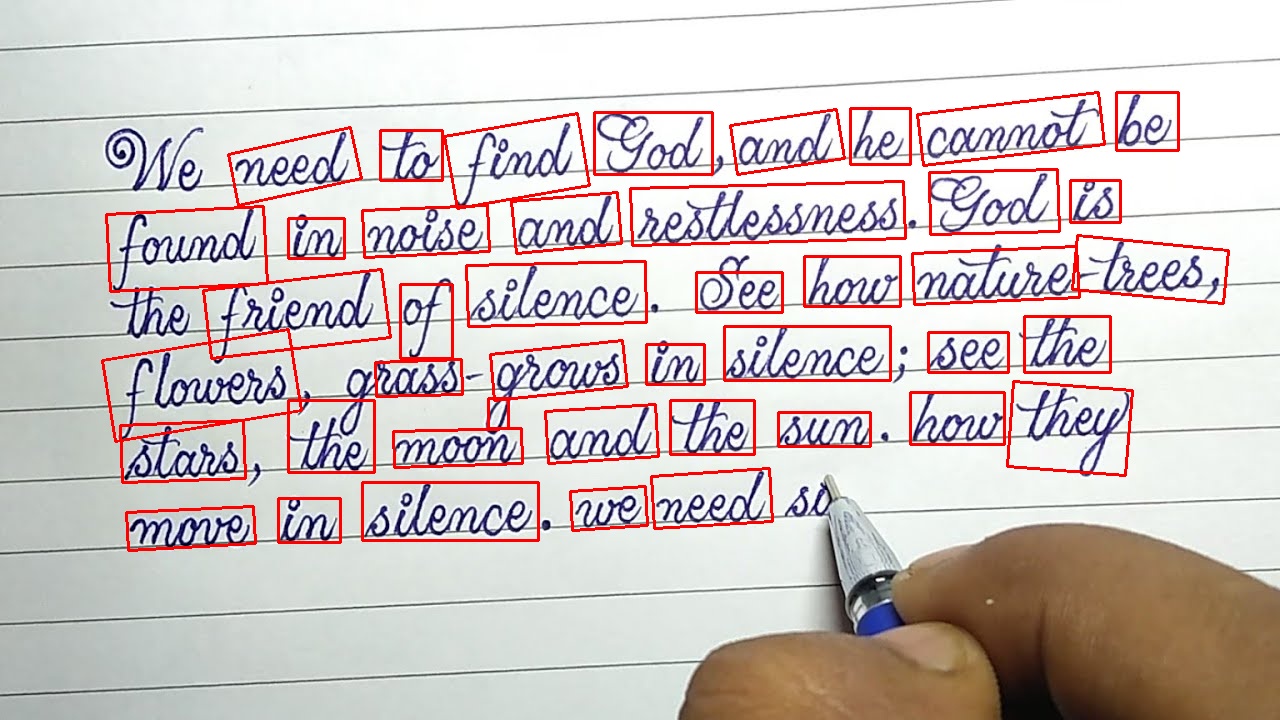 We need to find God, and he cannot be
found in noise and restlessness. God is
the friend of silence. See how nature-trees,
flowers, grass-grows in silence; see the
stars, the moon and the sun. how they
move in silence. we need so